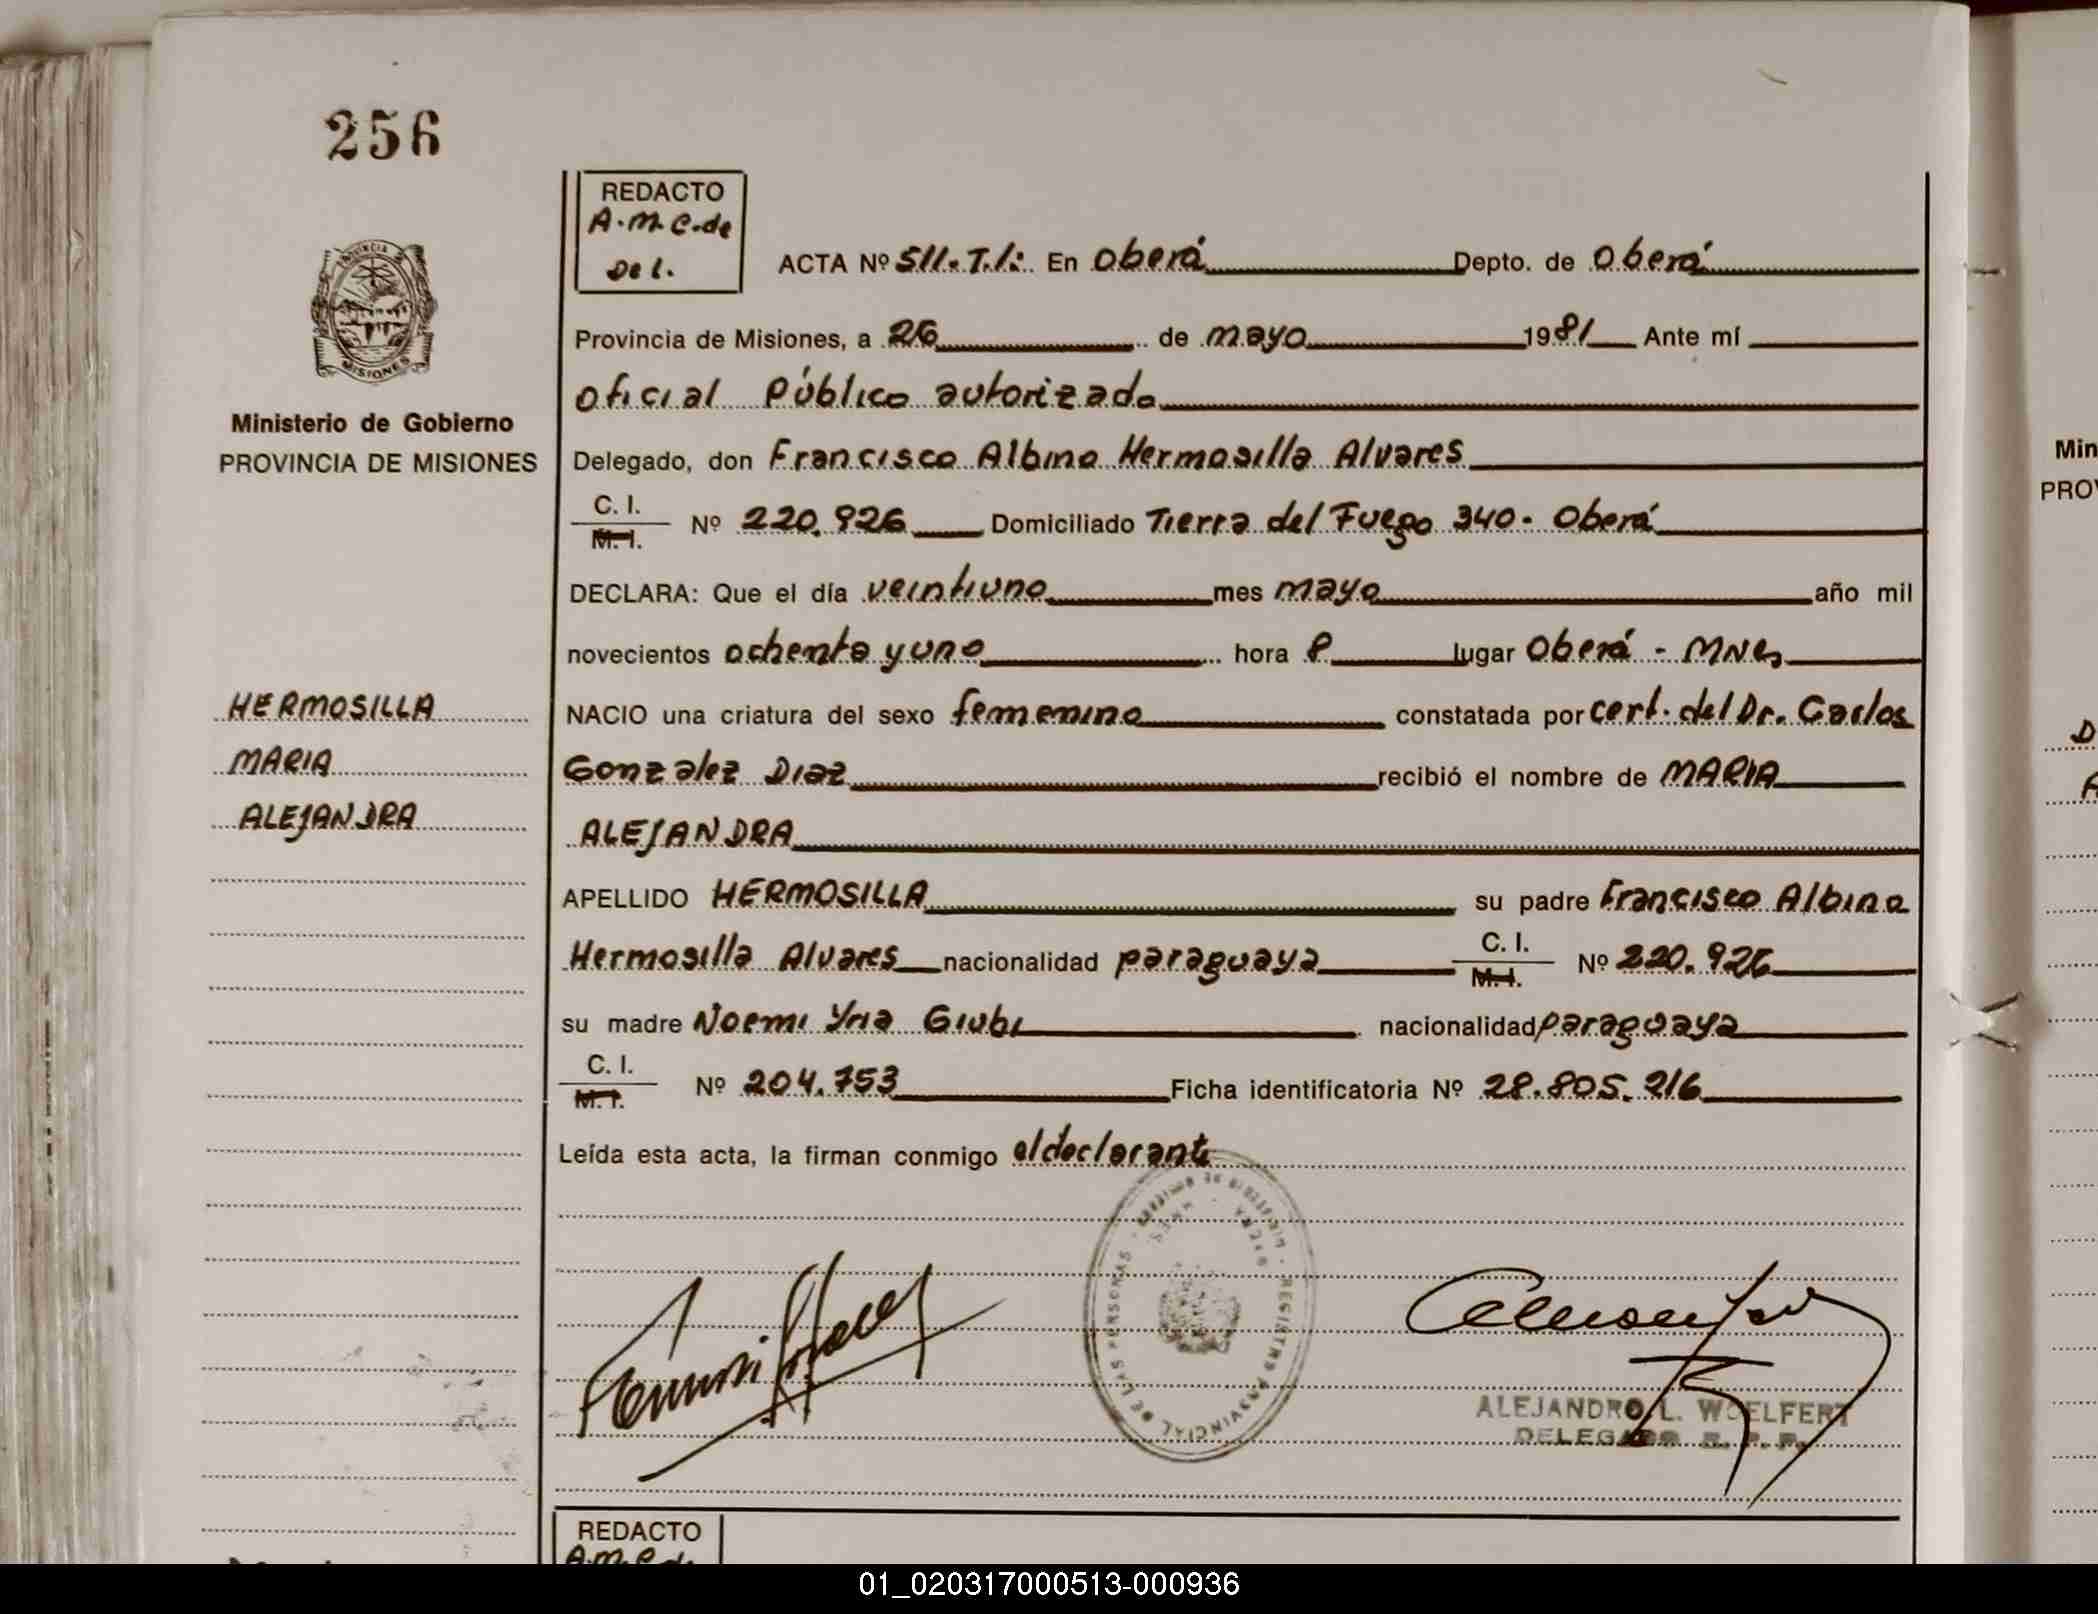 256
REDACTO
A.M.C. de
Del.
ACTA Nº 511. T.1: En Oberá Depto. de Oberá
Provincia de Misiones, a 26 de mayo 1981 Ante mí
Oficial Público autorizado
Ministerio de Gobierno
PROVINCIA DE MISIONES
Delegado, don Francisco Albino Hermosilla Alvares
C. I.
M. I. Nº 220.926 Domiciliado Tierra del Fuego 340- Oberá
DECLARA: Que el día veintiuno mes mayo año mil
novecientos ochenta y uno hora 8 lugar Oberá - MNes
HERMOSILLA
MARIA
ALEJANDRA
NACIO una criatura del sexo femenino constatada por cert. del Dr. Carlos
Gonzalez Diaz recibió el nombre de MARIA
ALEJANDRA
APELLIDO HERMOSILLA su padre Francisco Albino
Hermosilla Alvares nacionalidad paraguaya C. I. M. I. Nº 220.926
su madre Noemi Yria Giubi nacionalidad paraguaya
C. I.
M. I. Nº 204.753 Ficha identificatoria Nº 28.805.216
Leída esta acta, la firman conmigo el declarante
REGISTRO PROVINCIAL DE LAS PERSONAS
ALEJANDRO L. WOELFERT
DELEGADO R. P. P.
REDACTO
A.M.C. de
Min
PRO
01_020317000513-000936